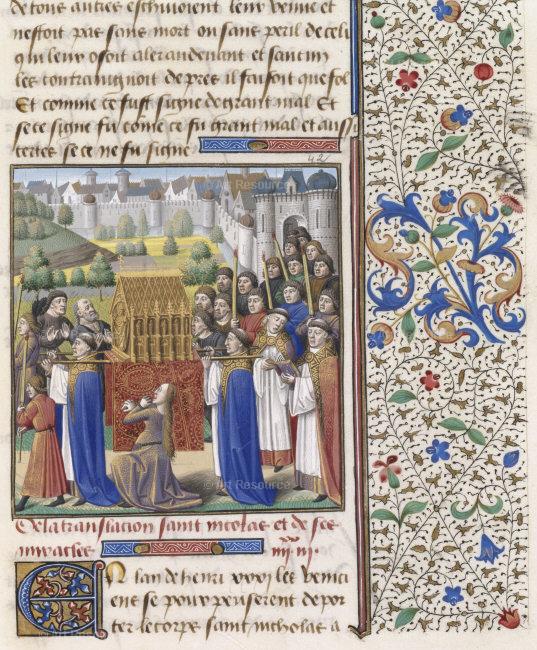 de tous autres eschivoient leur venue et
nestoit pas sans mort ou sans peril de celi
qui leur osoit aler audevant et sancun
les contraingnoit de pres il faisoit que fol
Et comme ce fust signe de grant mal Et
se ce signe fu come ce fu grant mal et aus
tertes se ce ne fu signe
42
© Art Resource
© Art Resource
De la translacion saint nicolas et de ses
miracles iiii iii.
En lan de henri xxxj les venici
ens se pourpenserent de por
ter le corps saint nicholas a